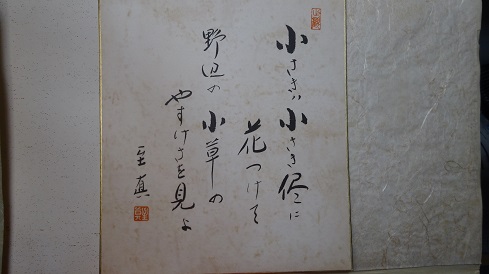 小さきは小さき侭に
花つけて
野辺の小草の
やすけさを見よ
至真